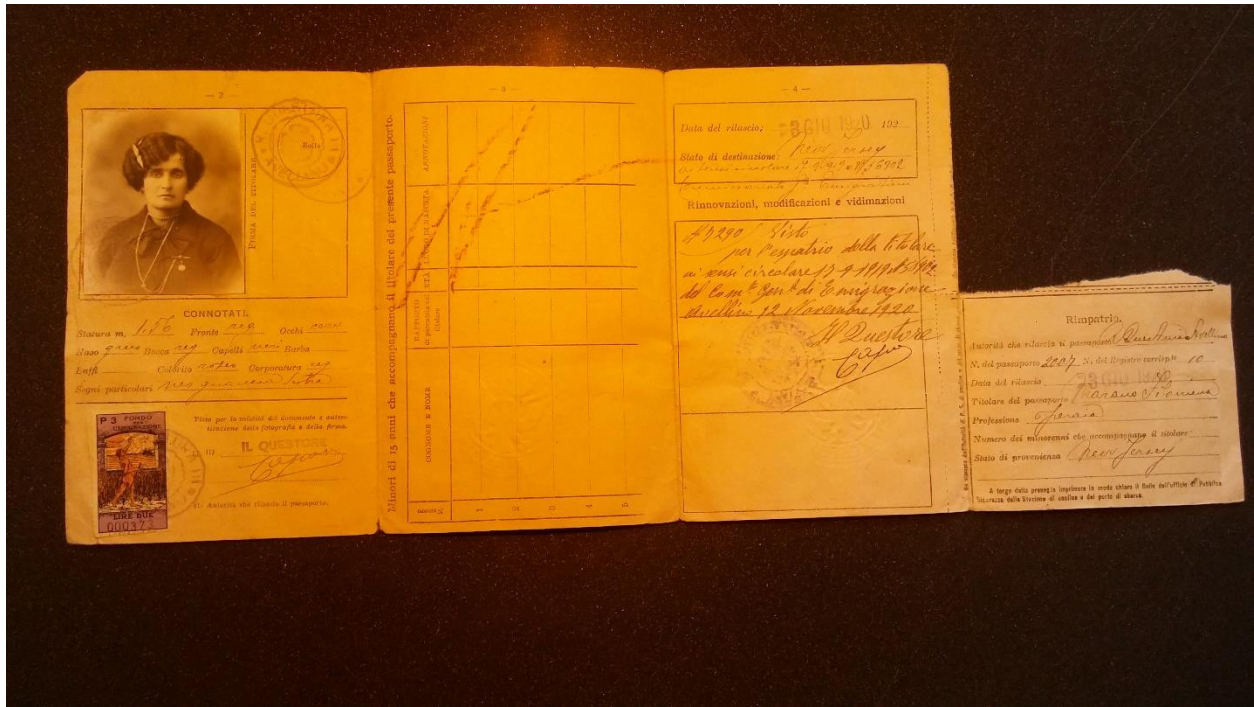 — 2 —
FIRMA DEL TITOLARE
Bollo
CONNOTATI.
Statura m. 1.56 Fronte reg Occhi
Naso Bocca reg Capelli neri Barba
Baffi Colorito roseo Corporatura reg
Segni particolari
P 3 FONDO
PER
L'EMIGRAZIONE
LIRE DUE
000373
Visto per la validità del documento e auten-
ticazione della fotografia e della firma.
(1) IL QUESTORE
(1) Autorità che rilascia il passaporto.
— 3 —
Minori di 15 anni che accompagnano il titolare del presente passaporto.
Numero
COGNOME E NOME
RAPPORTO
di parentela col
titolare
ETÀ
LUOGO DI NASCITA
ANNOTAZIONI
1
2
3
4
5
— 4 —
Data del rilascio; 23 GIU 1920 192
Stato di destinazione: New Jersey
ai sensi circolare 17.9.919 N° 56902
Commissariato Gle Emigrazione
Rinnovazioni, modificazioni e vidimazioni
N 7290 Visto
per l'espatrio della titolare
ai sensi circolare 17-9-1919 N 56902
del Comto Gento di Emigrazione
Avellino 12 Novembre 1920
Il Questore
Rimpatrio.
Autorità che rilascia il passaporto Questura Avellino
N. del passaporto 2007 N. del Registro corrispte 10
Data del rilascio 23 GIU 1920
Titolare del passaporto Marano Filomena
Professione
Numero dei minorenni che accompagnano il titolare
Stato di provenienza New Jersey
A tergo della presente imprimere in modo chiaro il Bollo dell'ufficio di Pubblica
Sicurezza della Stazione di confine o del porto di sbarco.